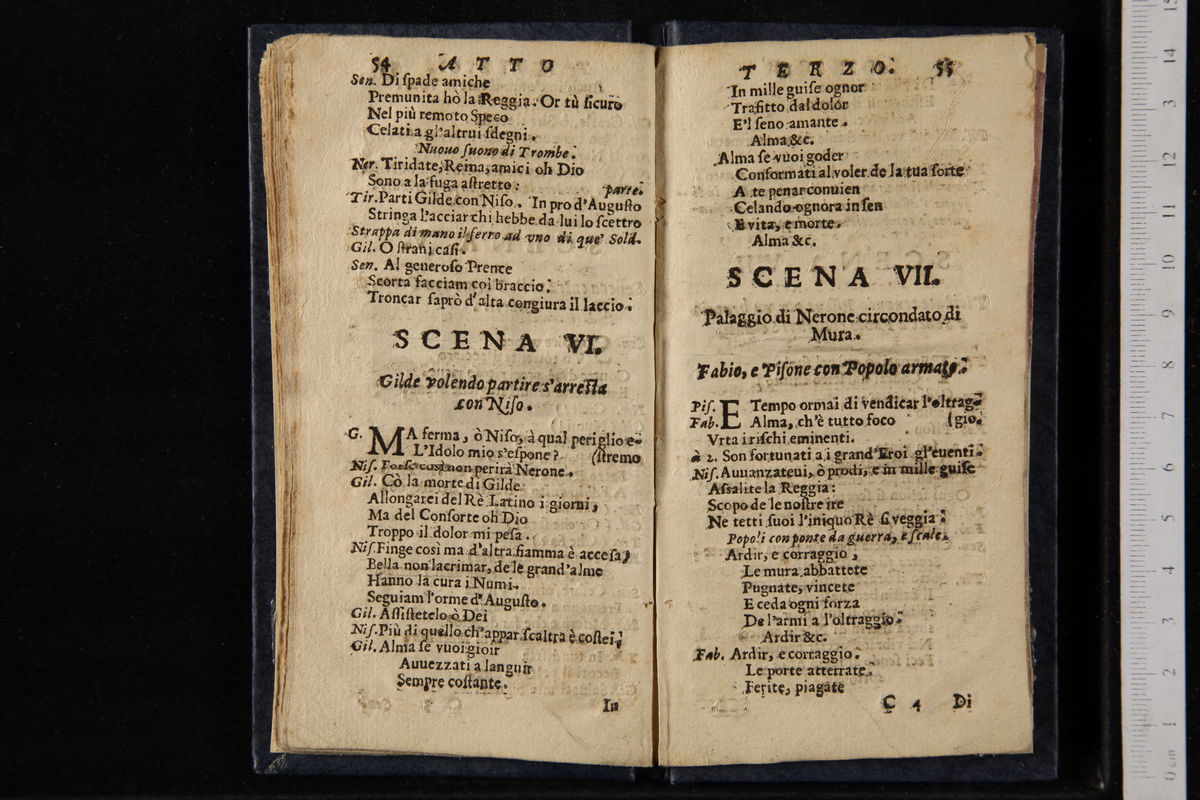 54 ATTO
Sen. Di ſpade amiche
Premunita hò la Reggia. Or tù ſicuro
Nel più remoto Speco
Celati a gl'altrui ſdegni.
Nuouo ſuono di Trombe.
Ner. Tiridate, Reina, amici oh Dio
Sono a la fuga aſtretto: parte.
Tir. Parti Gilde con Niſo. In pro d'Auguſto
Stringa l'acciar chi hebbe da lui lo ſcettro
Strappa di mano il ferro ad vno di que' Sold.
Gil. O ſtrani caſi.
Sen. Al generoſo Prence
Scorta facciam col braccio:
Troncar ſaprò d'alta congiura il laccio:
SCENA VI.
Gilde volendo partire s'arreſta
con Niſo.
G. MA ferma, ò Niſo, à qual periglio e-
L'Idolo mio s'eſpone? (ſtremo
Niſ. Forſe così non perirà Nerone.
Gil. Cò la morte di Gilde
Allongarei del Rè Latino i giorni,
Ma del Conſorte oh Dio
Troppo il dolor mi peſa.
Niſ. Finge così ma d'altra fiamma è acceſa,
Bella non lacrimar, de le grand'alme
Hanno la cura i Numi.
Seguiam l'orme d'Auguſto.
Gil. Aſſiſtetelo ò Dei
Niſ. Più di quello ch'appar ſcaltra è coſtei;
Gil. Alma ſe vuoi gioir
Auuezzati a languir
Sempre coſtante.
In
TERZO. 55
In mille guiſe ognor
Trafitto dal dolor
E'l ſeno amante.
Alma &c.
Alma ſe vuoi goder
Conformati al voler de la tua ſorte
A te penar conuien
Celando ognora in ſen
E vita, e morte.
Alma &c.
SCENA VII.
Palaggio di Nerone circondato di
Mura.
Fabio, e Piſone con Popolo armato.
Piſ. E Tempo ormai di vendicar l'oltrag-
Fab. Alma, ch'è tutto foco (gio.
Vrta i riſchi eminenti.
à 2. Son fortunati a i grand'Eroi gl'euenti.
Niſ. Auuanzateui, ò prodi, e in mille guiſe
Aſſalite la Reggia:
Scopo de le noſtre ire
Ne tetti ſuoi l'iniquo Rè ſi veggia.
Popoli con ponte da guerra, e ſcale.
Ardir, e corraggio,
Le mura abbattete
Pugnate, vincete
E ceda ogni forza
De l'armi a l'oltraggio.
Ardir &c.
Fab. Ardir, e corraggio.
Le porte atterrate.
Ferite, piagate
C 4 Di